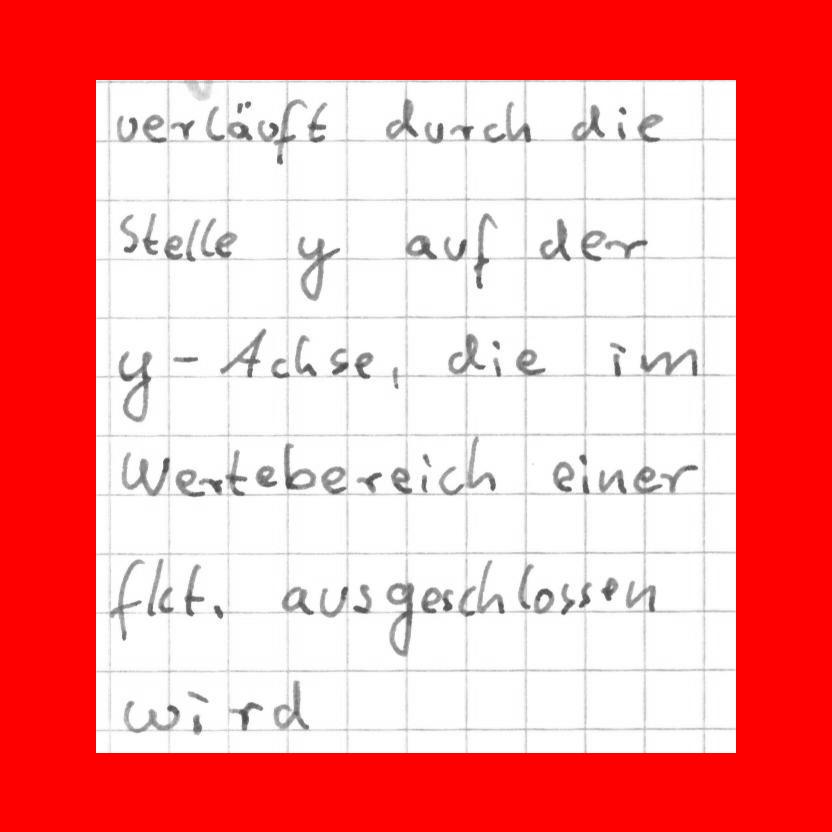 verläuft durch die
Stelle y auf der
y-Achse, die im
Wertebereich einer
fkt. ausgeschlossen
wird